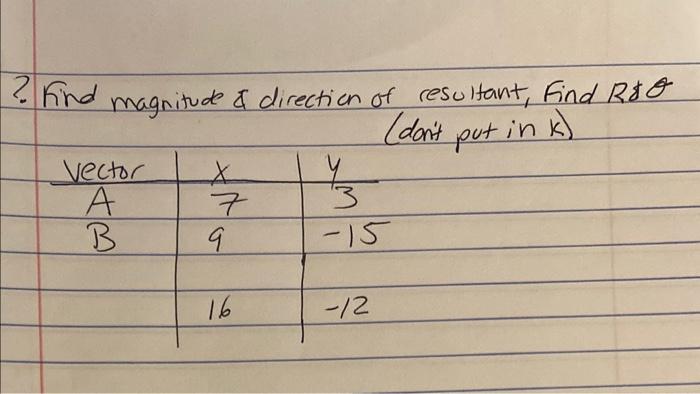 ? Find magnitude & direction of resultant, Find R & θ
(don't put in k)
Vector x y
A 7 3
B 9 -15
16 -12